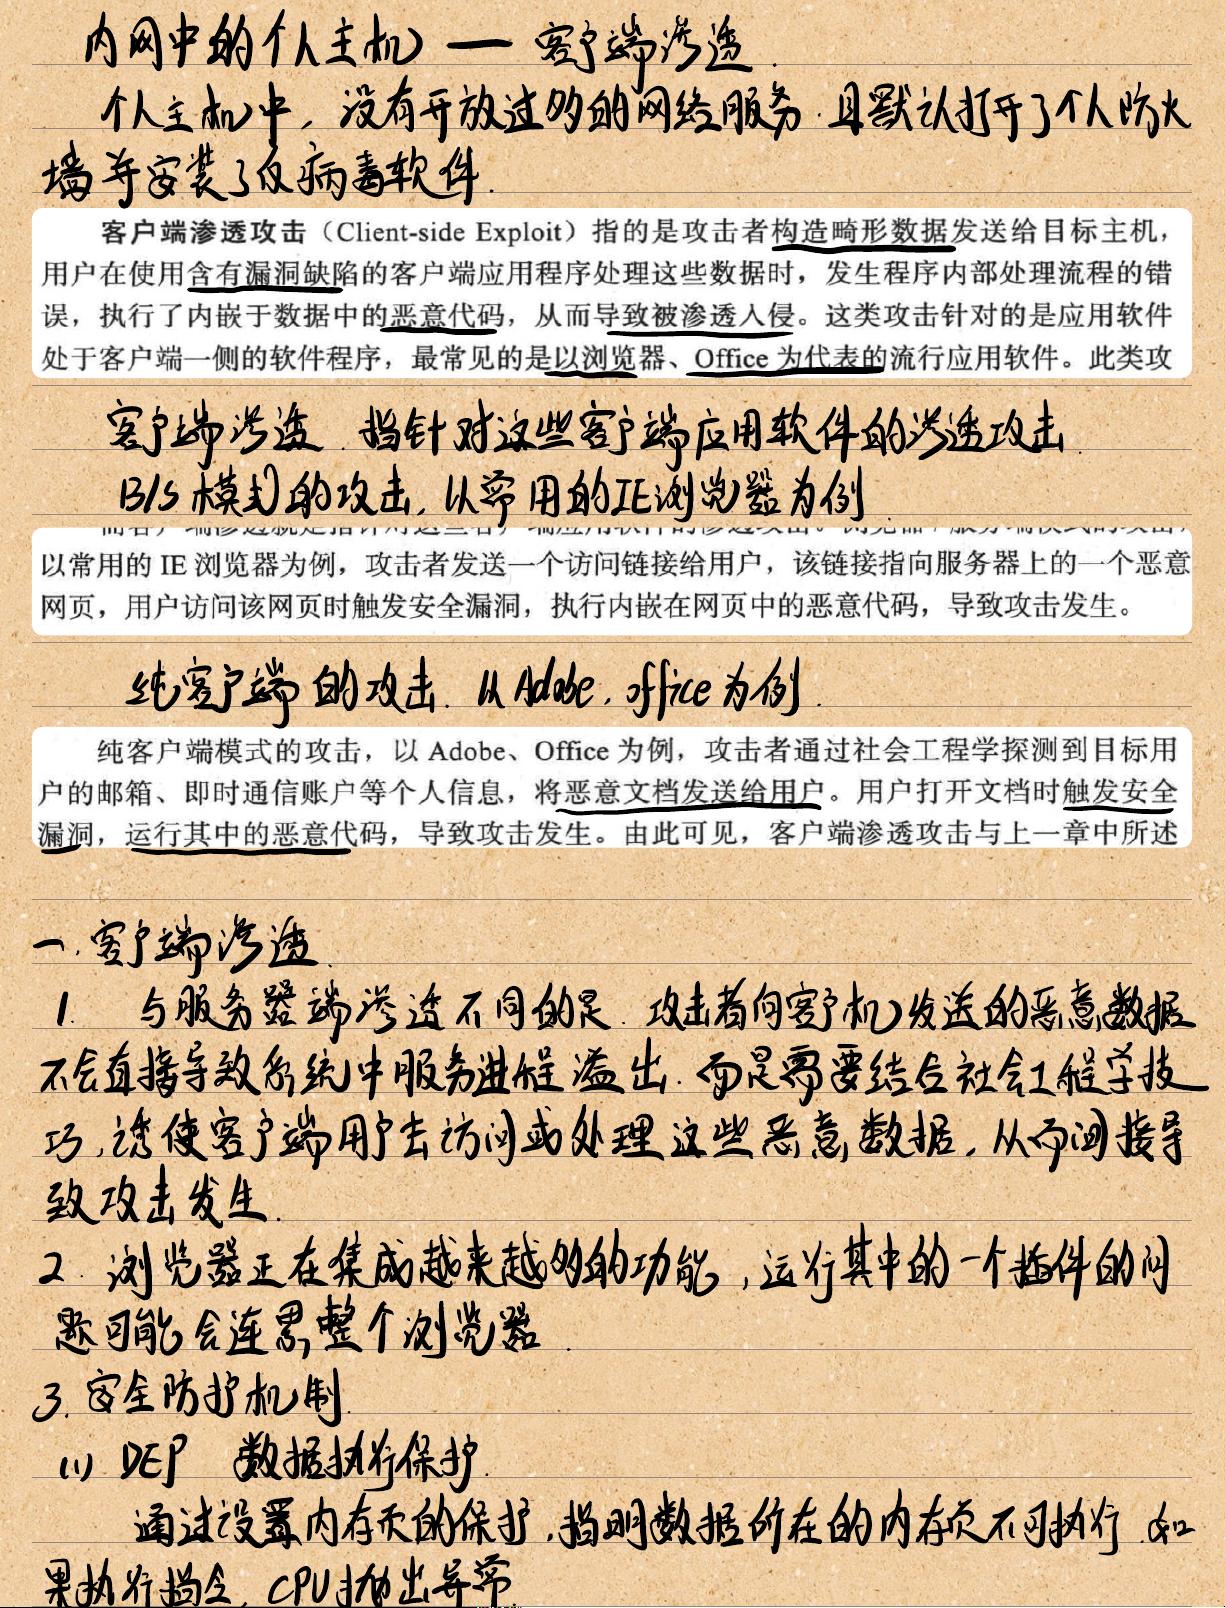 内网中的个人主机 — 客户端渗透.
个人主机中, 没有开放过多的网络服务. 且默认打开了个人防火
墙并安装了反病毒软件.
客户端渗透攻击（Client-side Exploit）指的是攻击者构造畸形数据发送给目标主机，
用户在使用含有漏洞缺陷的客户端应用程序处理这些数据时，发生程序内部处理流程的错
误，执行了内嵌于数据中的恶意代码，从而导致被渗透入侵。这类攻击针对的是应用软件
处于客户端一侧的软件程序，最常见的是以浏览器、Office 为代表的流行应用软件。此类攻
客户端渗透. 指针对这些客户端应用软件的渗透攻击.
B/S模式的攻击, 以常用的IE浏览器为例
而客户端渗透就是指针对这些客户端应用软件的渗透攻击。浏览器/服务端模式的攻击，
以常用的 IE 浏览器为例，攻击者发送一个访问链接给用户，该链接指向服务器上的一个恶意
网页，用户访问该网页时触发安全漏洞，执行内嵌在网页中的恶意代码，导致攻击发生。
纯客户端的攻击. 以Adobe, office为例.
纯客户端模式的攻击，以 Adobe、Office 为例，攻击者通过社会工程学探测到目标用
户的邮箱、即时通信账户等个人信息，将恶意文档发送给用户。用户打开文档时触发安全
漏洞，运行其中的恶意代码，导致攻击发生。由此可见，客户端渗透攻击与上一章中所述
一. 客户端渗透.
1. 与服务器端渗透不同的是. 攻击者向客户机发送的恶意数据
不会直接导致系统中服务进程溢出. 而是需要结合社会工程学技
巧, 诱使客户端用户去访问或处理这些恶意数据, 从而间接导
致攻击发生.
2. 浏览器正在集成越来越多的功能, 运行其中的一个插件的问
题可能会连累整个浏览器.
3. 安全防护机制.
(1) DEP 数据执行保护.
通过设置内存页的保护, 指明数据所在的内存页不可执行. 如
果执行指令, CPU抛出异常